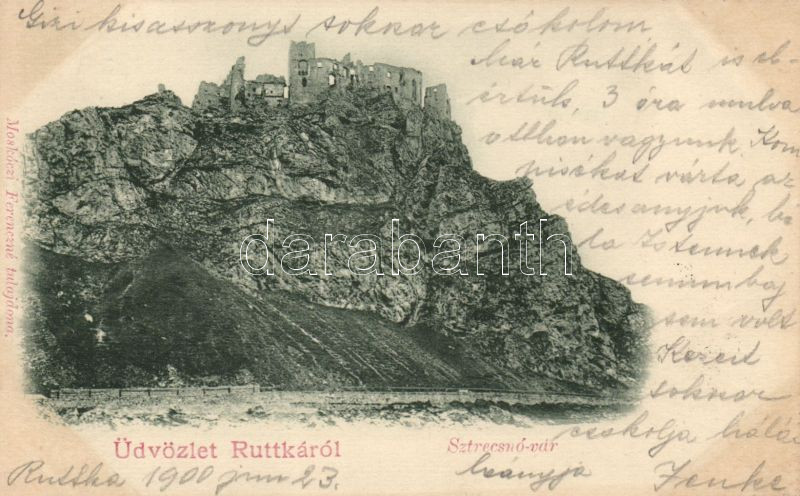 Gizi kisasszonyt sokszor csókolom
már Ruttkát is el-
értük, 3 óra mulva
otthon vagyunk. Kom
pisékat várta az
édesanyjuk, há
la Istennek
semmi baj
sem volt
Kezeit
sokszor
csókolja hálás
leányja Jenke
Moskóczi Ferenczné tulajdona.
darabanth
Üdvözlet Ruttkáról
Sztrecsnó-vár
Ruttka 1900 jun 23.